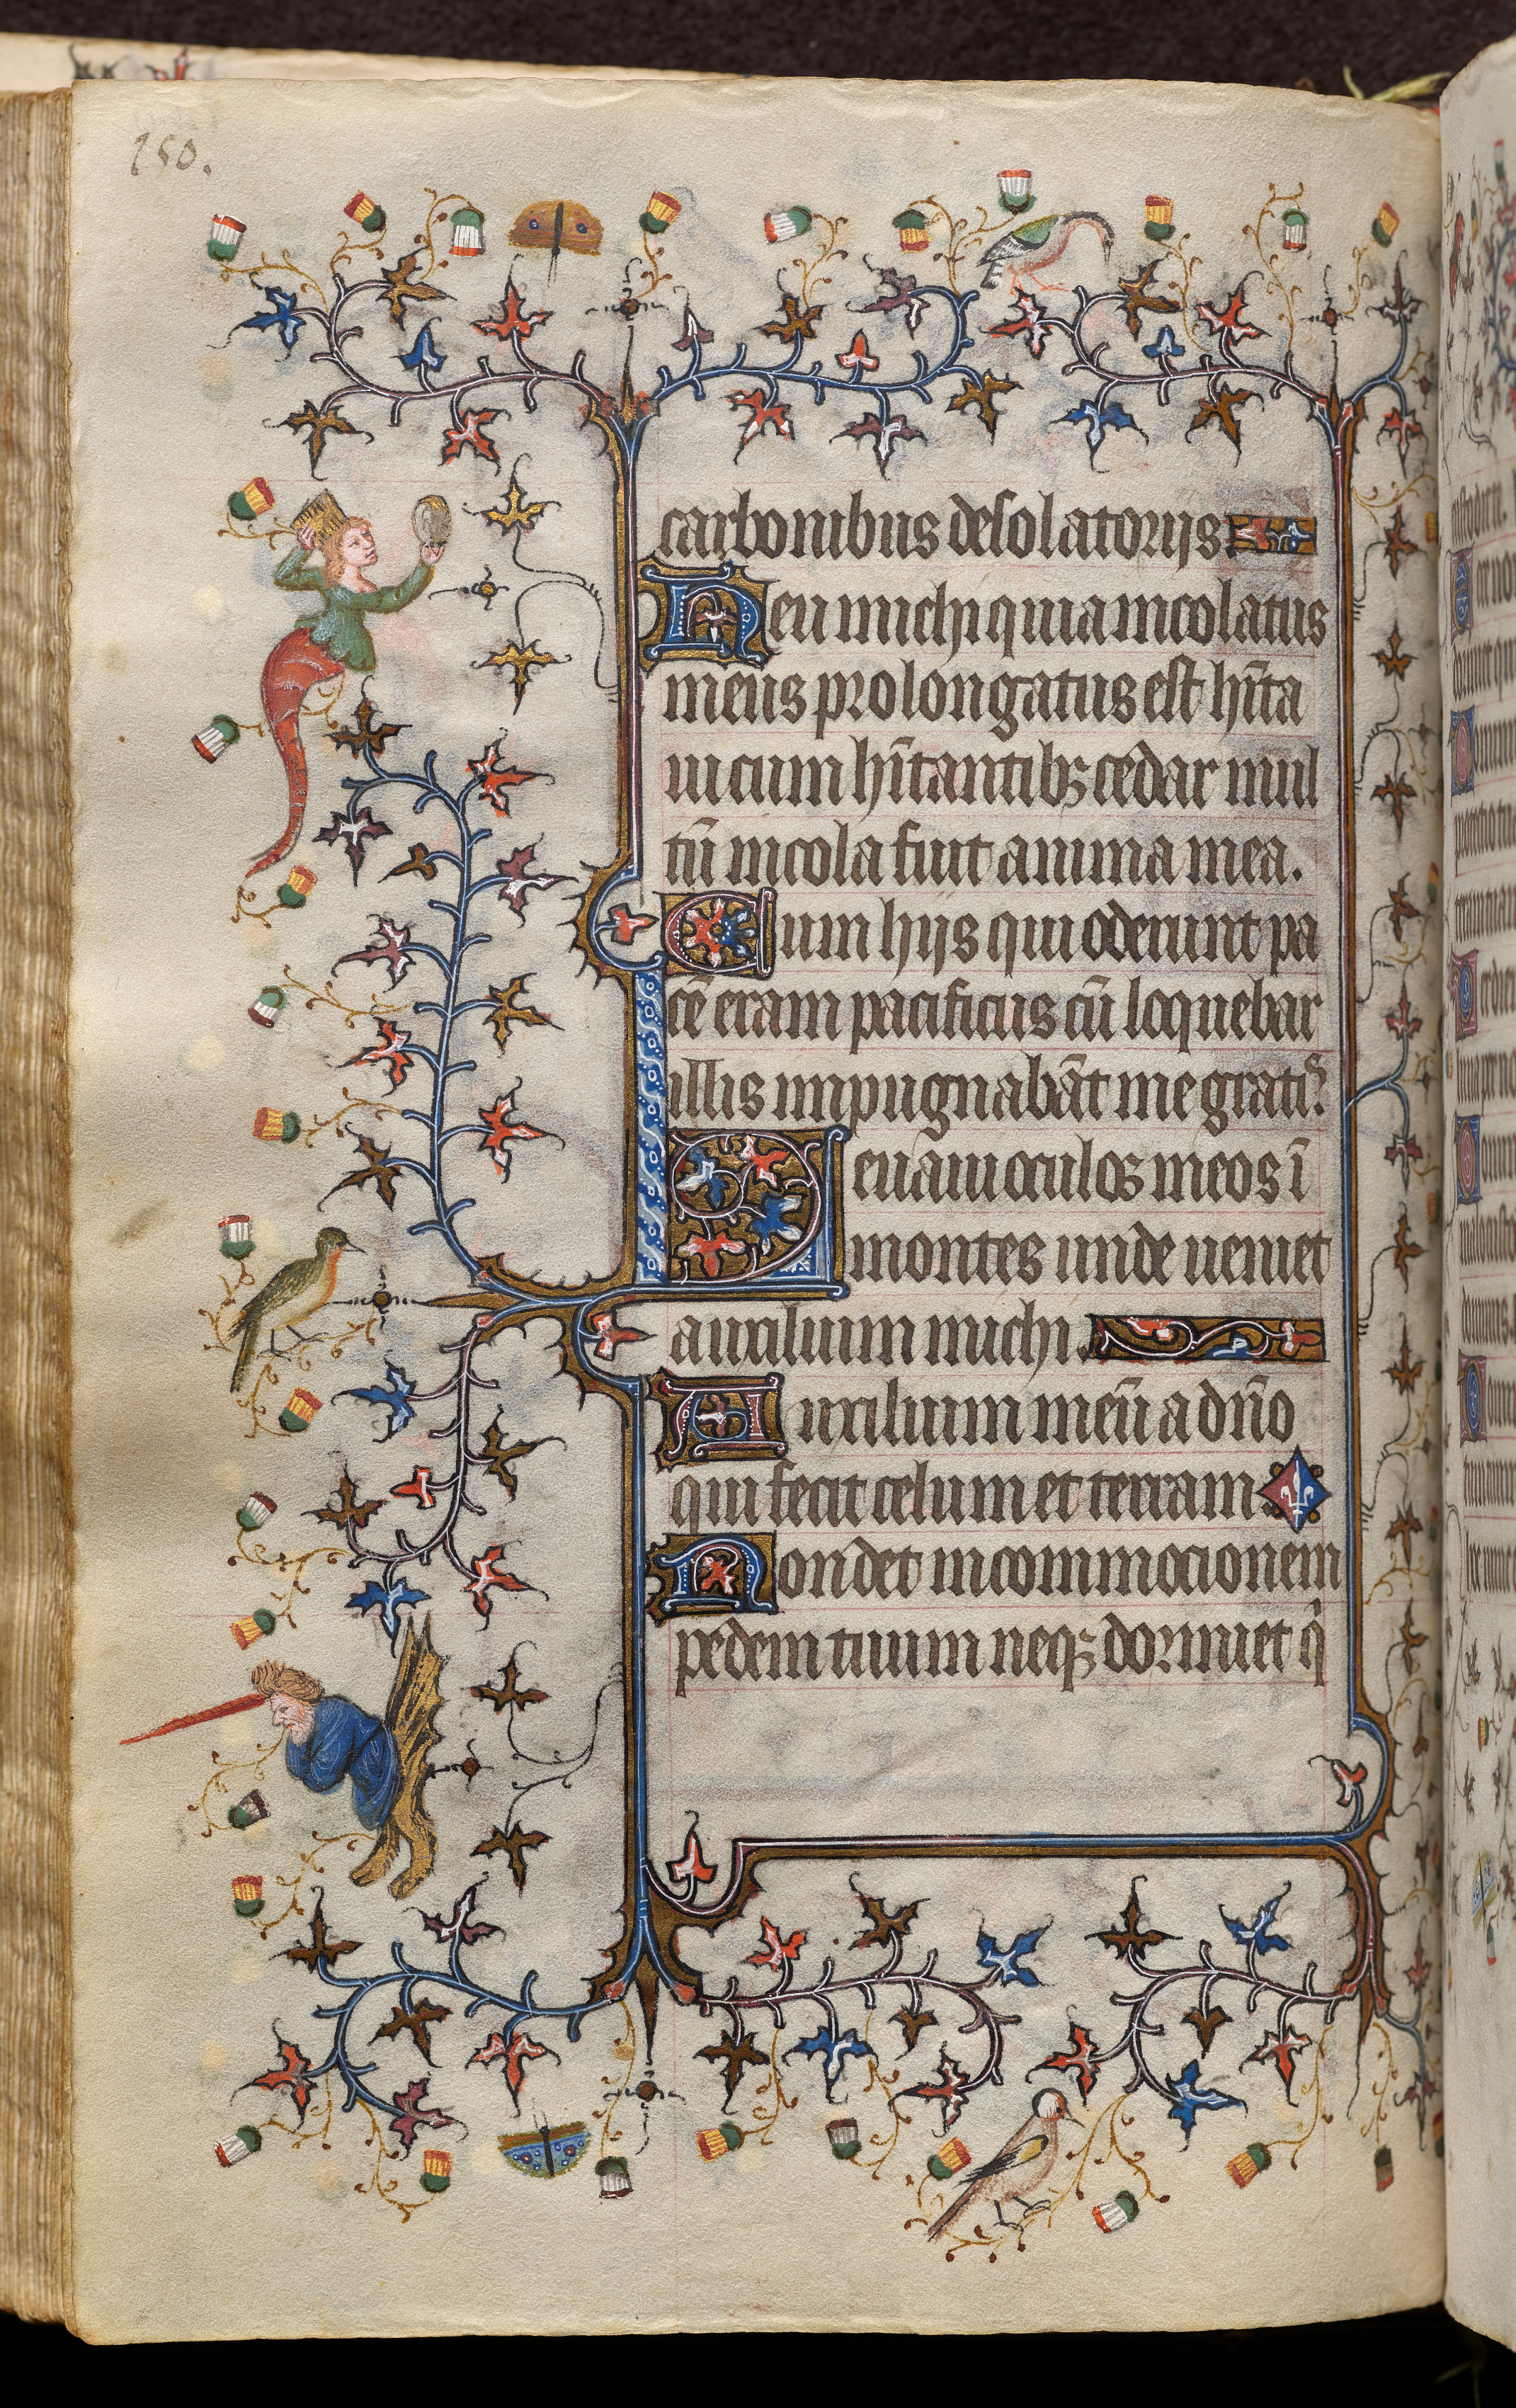 250.
carbonibus desolatorijs
Heu michi quia incolatus
meus prolongatus est hīta
ui cum hītantibꝫ cedar mul
tū incola fuit anima mea.
Cum hijs qui oderunt pa
cē eram pacificus cū loquebar
illis inpugnabāt me gratis.
Leuaui oculos meos ī
montes unde ueniet
auxilium michi.
Auxilium meū a dn̄o
qui fecit celum et terram.
Non det in commocionem
pedem tuum neqꝫ dormiet q̄